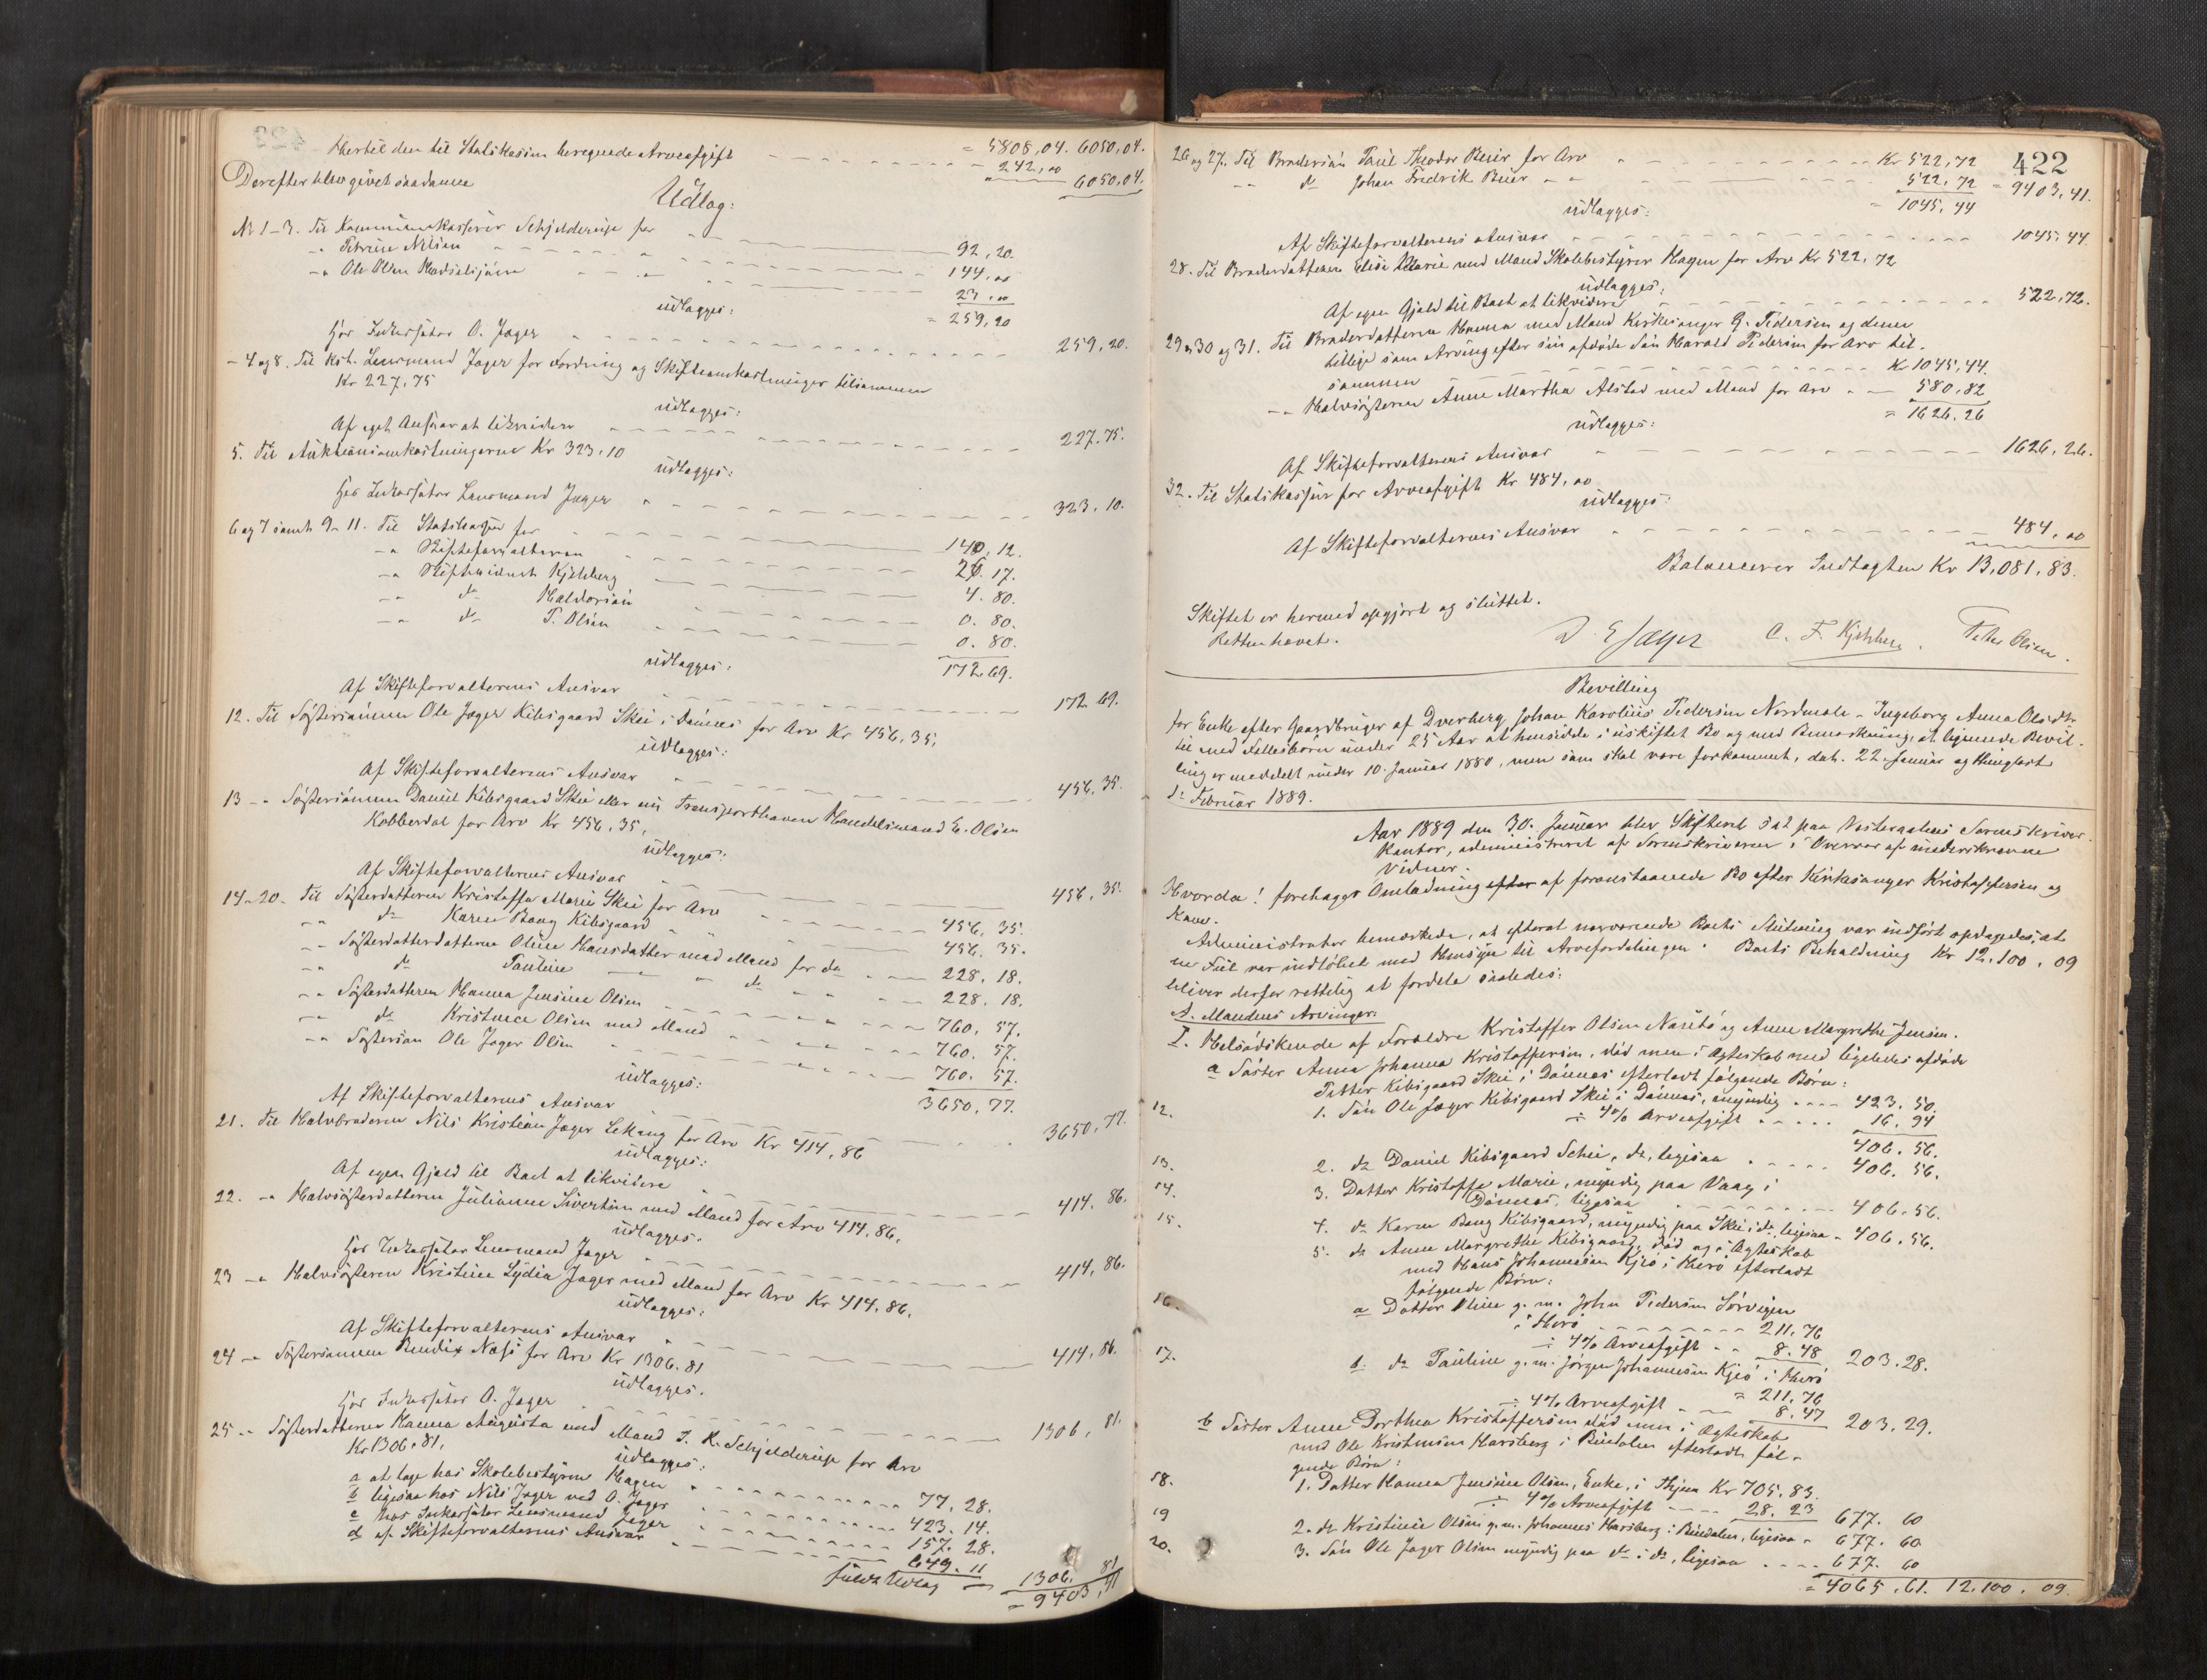 Hertil den til Statskassen beregnede Arveafgift = 5808,04. 6050,04.
242,00
Derefter blev givet saadanne 6050,04.
Udlæg:
No 1-3. Til Kommunekasserer Schjelderup for 92,20.
-„ Petrine Nilsen 144,00
-„ Ole Olsen 23,00
udlægges: = 259,20
Hos Inkassator O. Jæger 259,20.
- 4 og 8. Til Kst. Lensmand Jæger for Fordring og Skifteomkostninger tilsammen
Kr 227,75
udlægges:
Af eget Ansvar at likvidere 227.75.
5. Til Auktionsomkostningerne Kr 323,10
udlægges:
Hos Inkassator Lensmand Jæger 323,10.
6 og 7 samt 9-11. Til Statskassen for 140,12.
-„ Skifteforvalteren 26.17.
-„ Skiftevidnet Kjelsberg 4.80.
-„ do Haldorsen 0.80.
-„ do P. Olsen 0.80.
udlægges: 172.69.
Af Skifteforvalterens Ansvar 172.69.
12. Til Søstersønnen Ole Jæger Kibsgaard Skei i Dønnes for Arv Kr 456,35,
udlægges:
Af Skifteforvalterens Ansvar 456,35.
13 -„ Søstersønnen Daniel Kibsgaard Skei eller nu Transporthaver Handelsmand E. Olsen
Kobberdal for Arv Kr 456,35,
udlægges:
Af Skifteforvalterens Ansvar 456,35.
14-20. Til Søsterdatteren Kristoffa Marie Skei for Arv 456,35.
-„ do Karen Baug Kibsgaard 456.35.
-„ Søsterdatterdatteren Oline Hansdatter med Mand for do 228.18.
-„ do Pauline do 228.18.
-„ Søsterdatteren Hanna Jensine Olsen 760.57.
-„ do Kristence Olsen med Mand 760.57.
-„ Søstersøn Ole Jæger Olsen 760.57.
udlægges: 3650,77.
Af Skifteforvalterens Ansvar 3650,77.
21. Til Halvbroderen Nils Kristian Jæger Lekang for Arv Kr 414,86
udlægges:
Af egen Gjæld til Boet at likvidere 414.86.
22. -„ Halvsøsterdatteren Julianne Sivertsen med Mand for Arv 414,86,
udlægges.
Hos Inkassator Lensmand Jæger 414,86.
23 -„ Halvsøsteren Kristine Lydia Jæger med Mand for Arv Kr 414,86.
udlægges:
Af Skifteforvalterens Ansvar 414,86.
24 -„ Søstersønnen Bendix Næss for Arv Kr 1306.81
udlægges.
Hos Inkassator O. Jæger 1306,81.
25 -„ Søsterdatteren Hanna Augusta med Mand J. K. Schjelderup for Arv
Kr 1306.81,
udlægges:
a at tage hos Skolebestyrer Hagen 77,28.
b ligesaa hos Nils Jæger ved O. Jæger 423.14.
c hos Inkassator Lensmand Jæger 157.28.
d af Skifteforvalterens Ansvar 649.11 1306.81
fuldt Udlæg = 9403,41
422
26 og 27. Til Brodersøn Paul Theodor Beier for Arv Kr 522,72
-„ do Johan Fredrik Beier 522,72 = 9403,41.
udlægges: = 1045,44
Af Skifteforvalterens Ansvar 1045,44.
28. Til Broderdatteren Elise Marie med Mand Skolebestyrer Hagen for Arv Kr 522,72
udlægges:
Af egen Gjæld til Boet at likvidere 522,72.
29, 30 og 31. Til Broderdatteren Hanna med Mand Kirkesanger G. Pedersen og denne
tillige som Arving efter sin afdøde Søn Harald Pedersen for Arv til-
sammen Kr 1045,44.
-„ Halvsøsteren Anne Martha Alstad med Mand for Arv 580,82
udlægges: = 1626,26
Af Skifteforvalterens Ansvar 1626,26.
32. Til Statskassen for Arveafgift Kr 484,00
udlægges:
Af Skifteforvalterens Ansvar 484,00
Balancerer Indtægten Kr 13,081,83.
Skiftet er hermed opgjort og sluttet.
Retten hævet.
D E Jæger C. F. Kjelsberg. Peter Olsen.
Bevilling
for Enke efter Gaardbruger af Dverberg Johan Karolius Pedersen Nordmæle - Ingeborg Anna Olsdtr
til med Fællesbørn under 25 Aar at hensidde i uskiftet Bo og med Bemærkning, at lignende Bevil-
ling er meddelt under 10. Januar 1880, men som skal være forkommet, dat. 22. Januar og thinglæst
1. Februar 1889.
Aar 1889 den 30. Januar blev Skifteret sat paa Vesteraalens Sorenskriver-
Kontor, administreret af Sorenskriveren i Overvær af underskrevne
Vidner.
Hvorda! foretages Omlodning efter af foranstaaende Bo efter Kirkesanger Kristoffersen og
Kone.
Administrator bemærkede, at efterat nærværende Boets Slutning var indført opdagedes, at
en Feil var indløbet med Hensyn til Arvefordelingen. Boets Beholdning Kr 12.100,09
bliver derfor rettelig at fordele saaledes:
A. Mandens Arvinger:
I. Helsødskende af Forældre Kristoffer Olsen Næstø og Anne Margrethe Jensen.
a Søster Anna Johanna Kristoffersen, død men i Ægteskab med ligeledes afdøde
Petter Kibsgaard Skei i Dønnes efterladt følgende Børn:
12. 1. Søn Ole Jæger Kibsgaard Skei i Dønnes, myndig 423.50
÷ 4% Arveafgift 16.94
406.56.
13. 2. do Daniel Kibsgaard Schei, do, ligesaa 406.56.
14. 3. Datter Kristoffa Marie, myndig paa Vaag i
Dønnes, ligesaa 406.56.
15. 4. do Karen Baug Kibsgaard, myndig paa Skei i do, ligesaa 406.56.
5. do Anne Margrethe Kibsgaard, død og i Ægteskab
med Hans Johannesen Kjeø i Herø efterladt
følgende Børn:
16. a Datter Oline g. m. John Pedersen Sørvigen
i Herø 211.76
÷ 4% Arveafgift 8.48 203.28.
17. b. do Pauline g. m. Jørgen Johannesen Kjeø i Herø
= 211,76
÷ 4% Arveafgift 8.47 203.29.
b Søster Anne Dorthea Kristoffersen død men i Ægteskab
med Ole Kristensen Harsberg i Bindalen efterladt føl-
gende Børn:
18. 1. Datter Hanna Jensine Olsen, Enke, i Kr 705.83.
÷ 4% Arveafgift 28.23 677.60
19 2. do Kristine Olsen g. m. Johannes Harsberg i Bindalen, ligesaa 677.60
20. 3. Søn Ole Jæger Olsen myndig paa do i do, ligesaa 677.60
= 4065.61. 12.100.09.